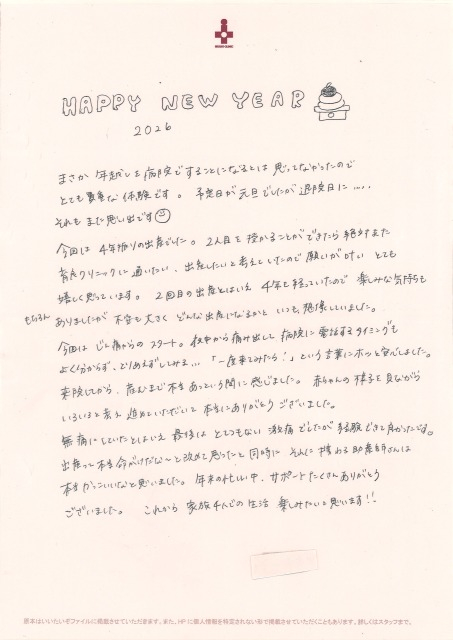 HAPPY NEW YEAR
2026
まさか 年越しを病院ですることになるとは 思ってなかったので
とても貴重な体験です。 予定日が元旦でしたが退院日に.....
それもまた思い出です
今回は 4年振りの出産でした。2人目を授かることができたら 絶対また
育良クリニックに通いたい、出産したいと考えていたので 願いが叶い とても
嬉しく思っています。 2回目の出産とはいえ 4年も経っていたので 楽しみな気持ちも
もちろん ありましたが 不安も大きく どんな出産になるかと いつも想像していました。
今回は じん痛からの スタート。夜中から痛み出して 病院に電話するタイミングも
よく分からず、とりあえずしてみる...「一度来てみたら！」という言葉にホッと安心しました。
来院してから、産むまで本当あっという間に感じました。赤ちゃんの様子を見ながら
いろいろと考え 進めていただいて 本当にありがとう ございました。
無痛にしていたとはいえ 最後は とてつもない 激痛でしたが 経験できて良かったです。
出産って本当命がけだな〜と改めて思ったと同時に それに携わる助産師さんは
本当かっこいいなと思いました。年末の忙しい中、サポートたくさんありがとう
ございました。 これから 家族4人での生活 楽しみたいと思います!!
原本はいいたいそファイルに掲載させていただきます。また、HPに個人情報を特定されない形で掲載させていただくこともあります。詳しくはスタッフまで。